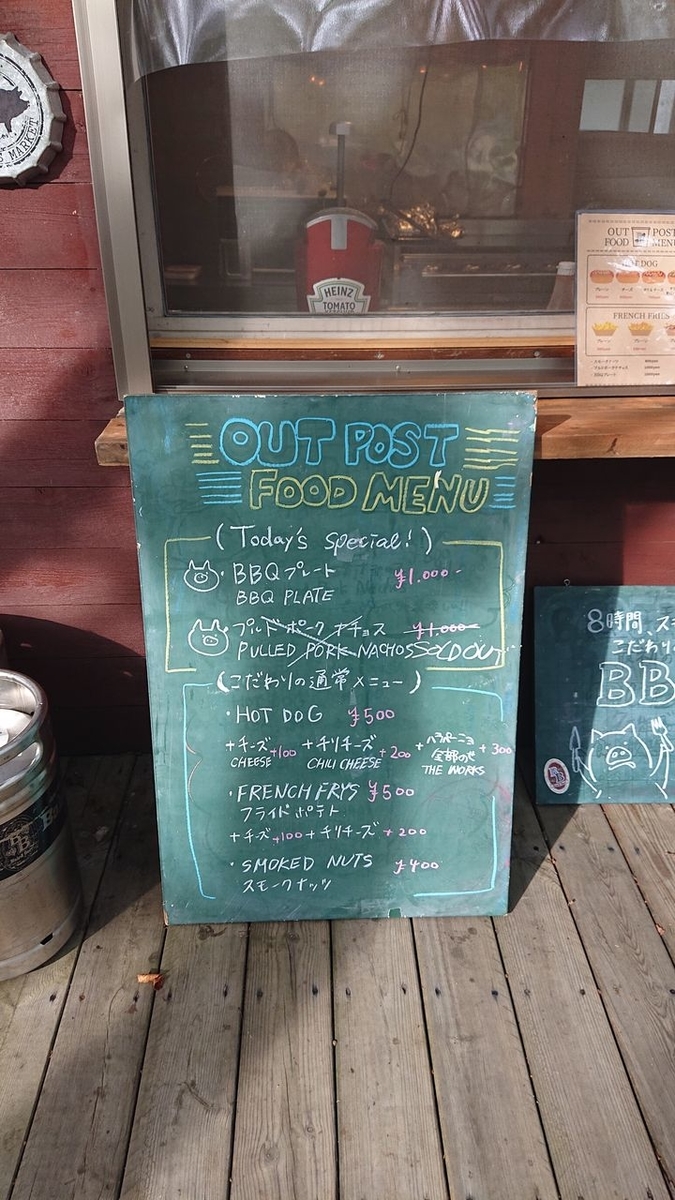 S MARKET
HEINZ
TOMATO
OUT POST
FOOD MENU
HOT DOG
FRENCH FRIES
OUT POST
FOOD MENU
(Today's special!)
・BBQプレート ¥1.000-
BBQ PLATE
プルドポークナチョス ¥1.000-
PULLED PORK NACHOS SOLD OUT
(こだわりの通常メニュー)
・HOT DOG ¥500
+チーズ+100 +チリチーズ+200 +ハラペーニョ 全部のせ +300
CHEESE CHILI CHEESE THE WORKS
・FRENCH FRYS ¥500
フライドポテト
+チーズ+100+チリチーズ+200
・SMOKED NUTS ¥400
スモークナッツ
8時間、ス
こだわり
BB